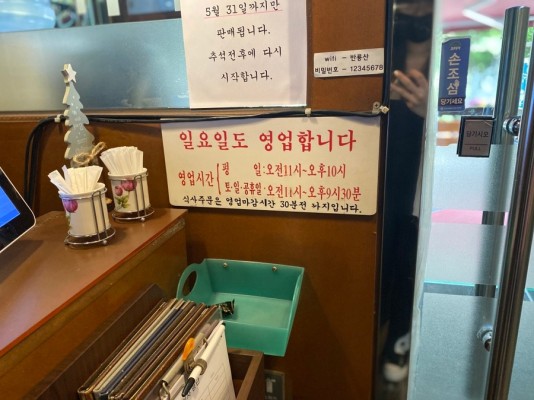 5월 31일까지만
판매됩니다.
추석전후에 다시
시작합니다.
wifi - 반룡산
비밀번호 - 12345678
손조심
당기세요
당기시오
PULL
일요일도 영업합니다
영업시간
평 일:오전11시~오후10시
토·일·공휴일:오전11시~오후9시30분
식사주문은 영업마감시간 30분전 까지입니다.